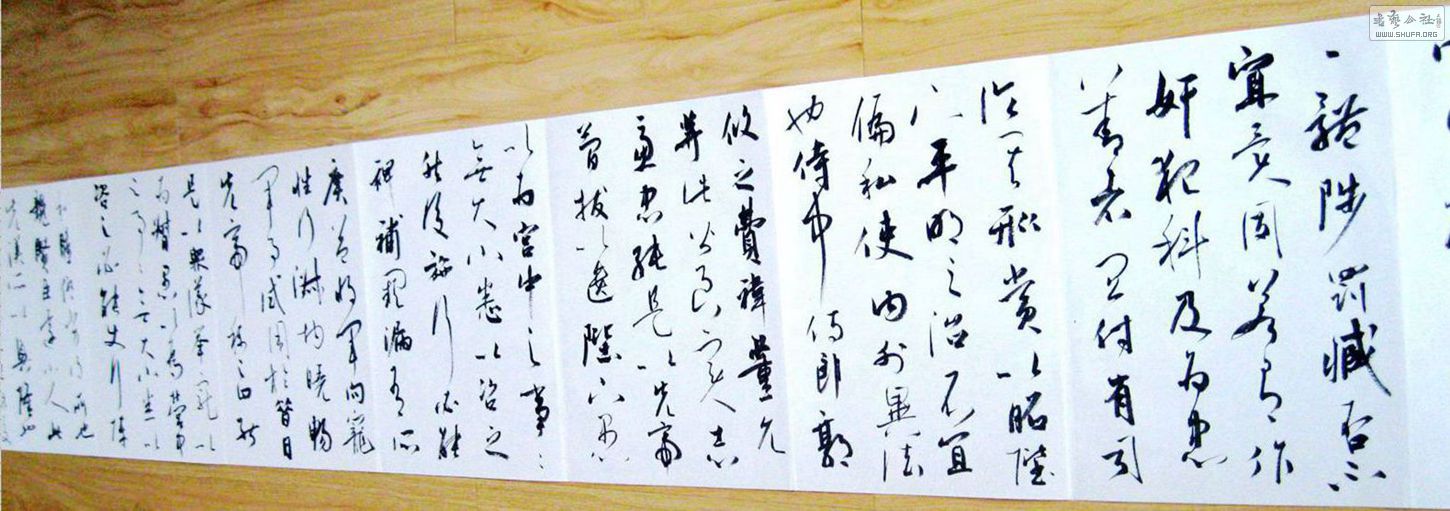 书艺公社
WWW.SHUFA.ORG
一體陟罚臧否不
宜异同若有作
奸犯科及为忠
善者宜付有司
论其刑赏以昭陛
下平明之治不宜
偏私使内外異法
也侍中侍郎郭
攸之費禕董允
等此皆良实志
慮忠純是以先帝
简拔以遗陛下愚
以为宫中之事〻
無大小悉以咨之
然後施行必能
裨補阙漏有所
廣益将軍向寵
性行淑均晓暢
军事试用於昔日
先帝称之曰能
是以衆議举寵以
为督愚以为营中
之事〻无大小悉以
咨之必能使行阵
和睦优劣得所也
親賢臣遠小人此
先漢所以興隆也